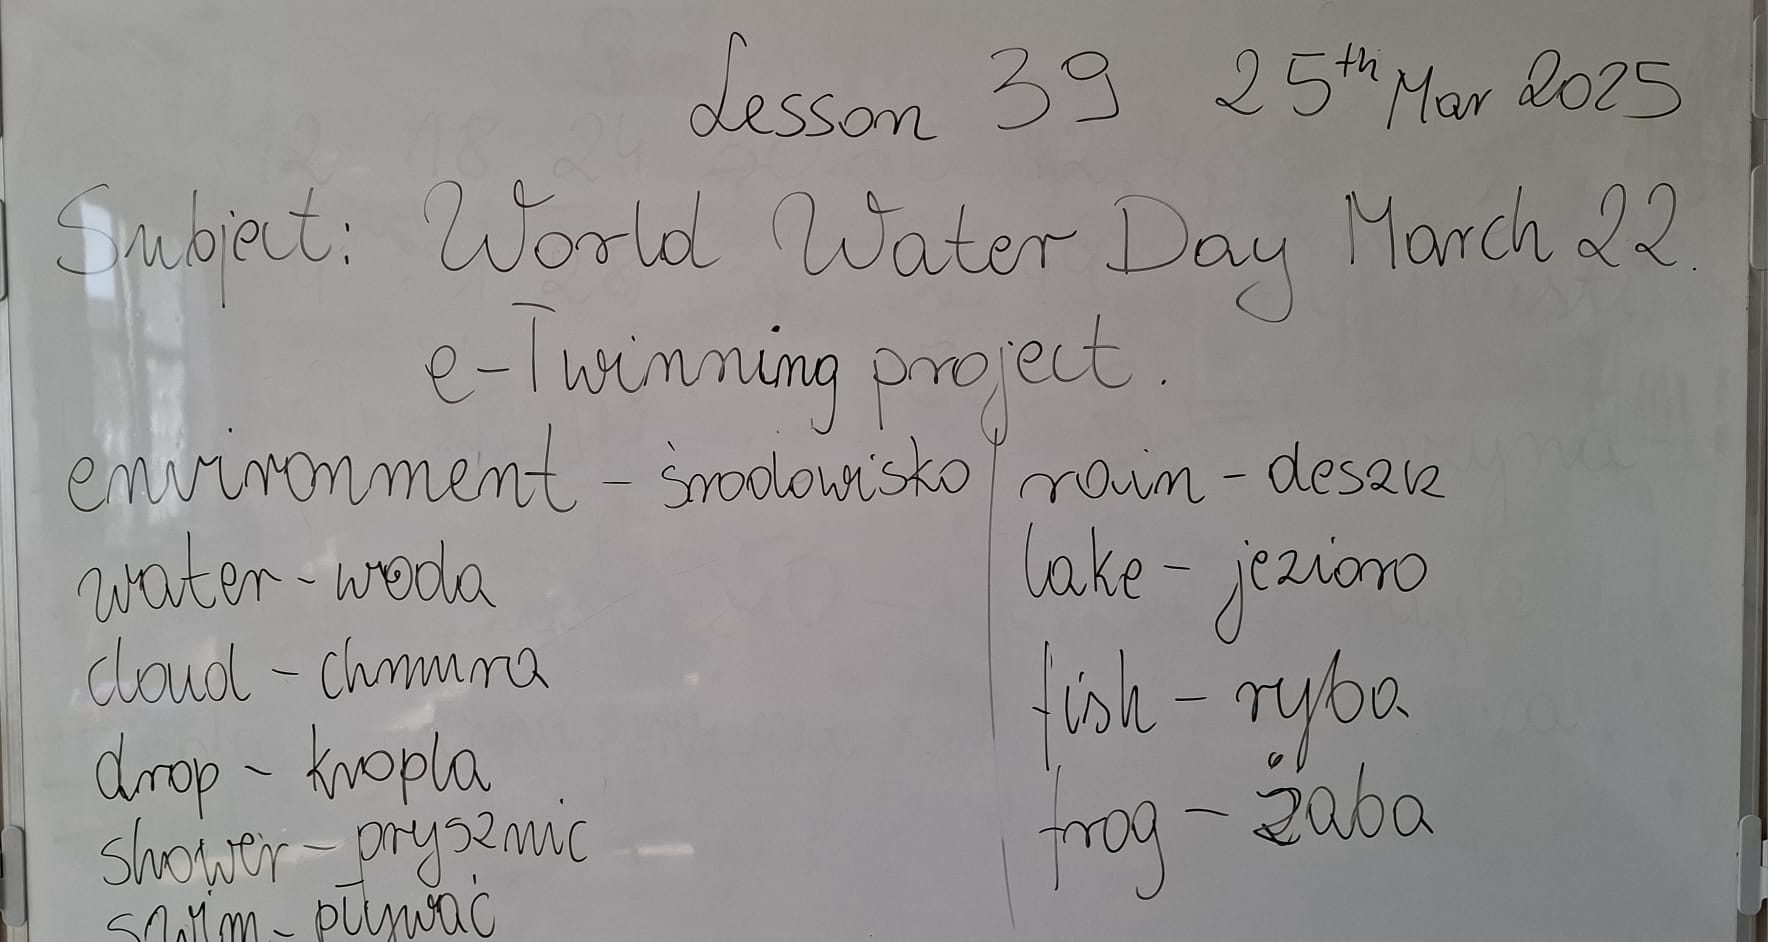 Lesson 39 25th Mar 2025
Subject: World Water Day March 22.
e-Twinning project.
environment - środowisko
water - woda
cloud - chmura
drop - kropla
shower - prysznic
swim - pływać
rain - deszcz
lake - jezioro
fish - ryba
frog - żaba